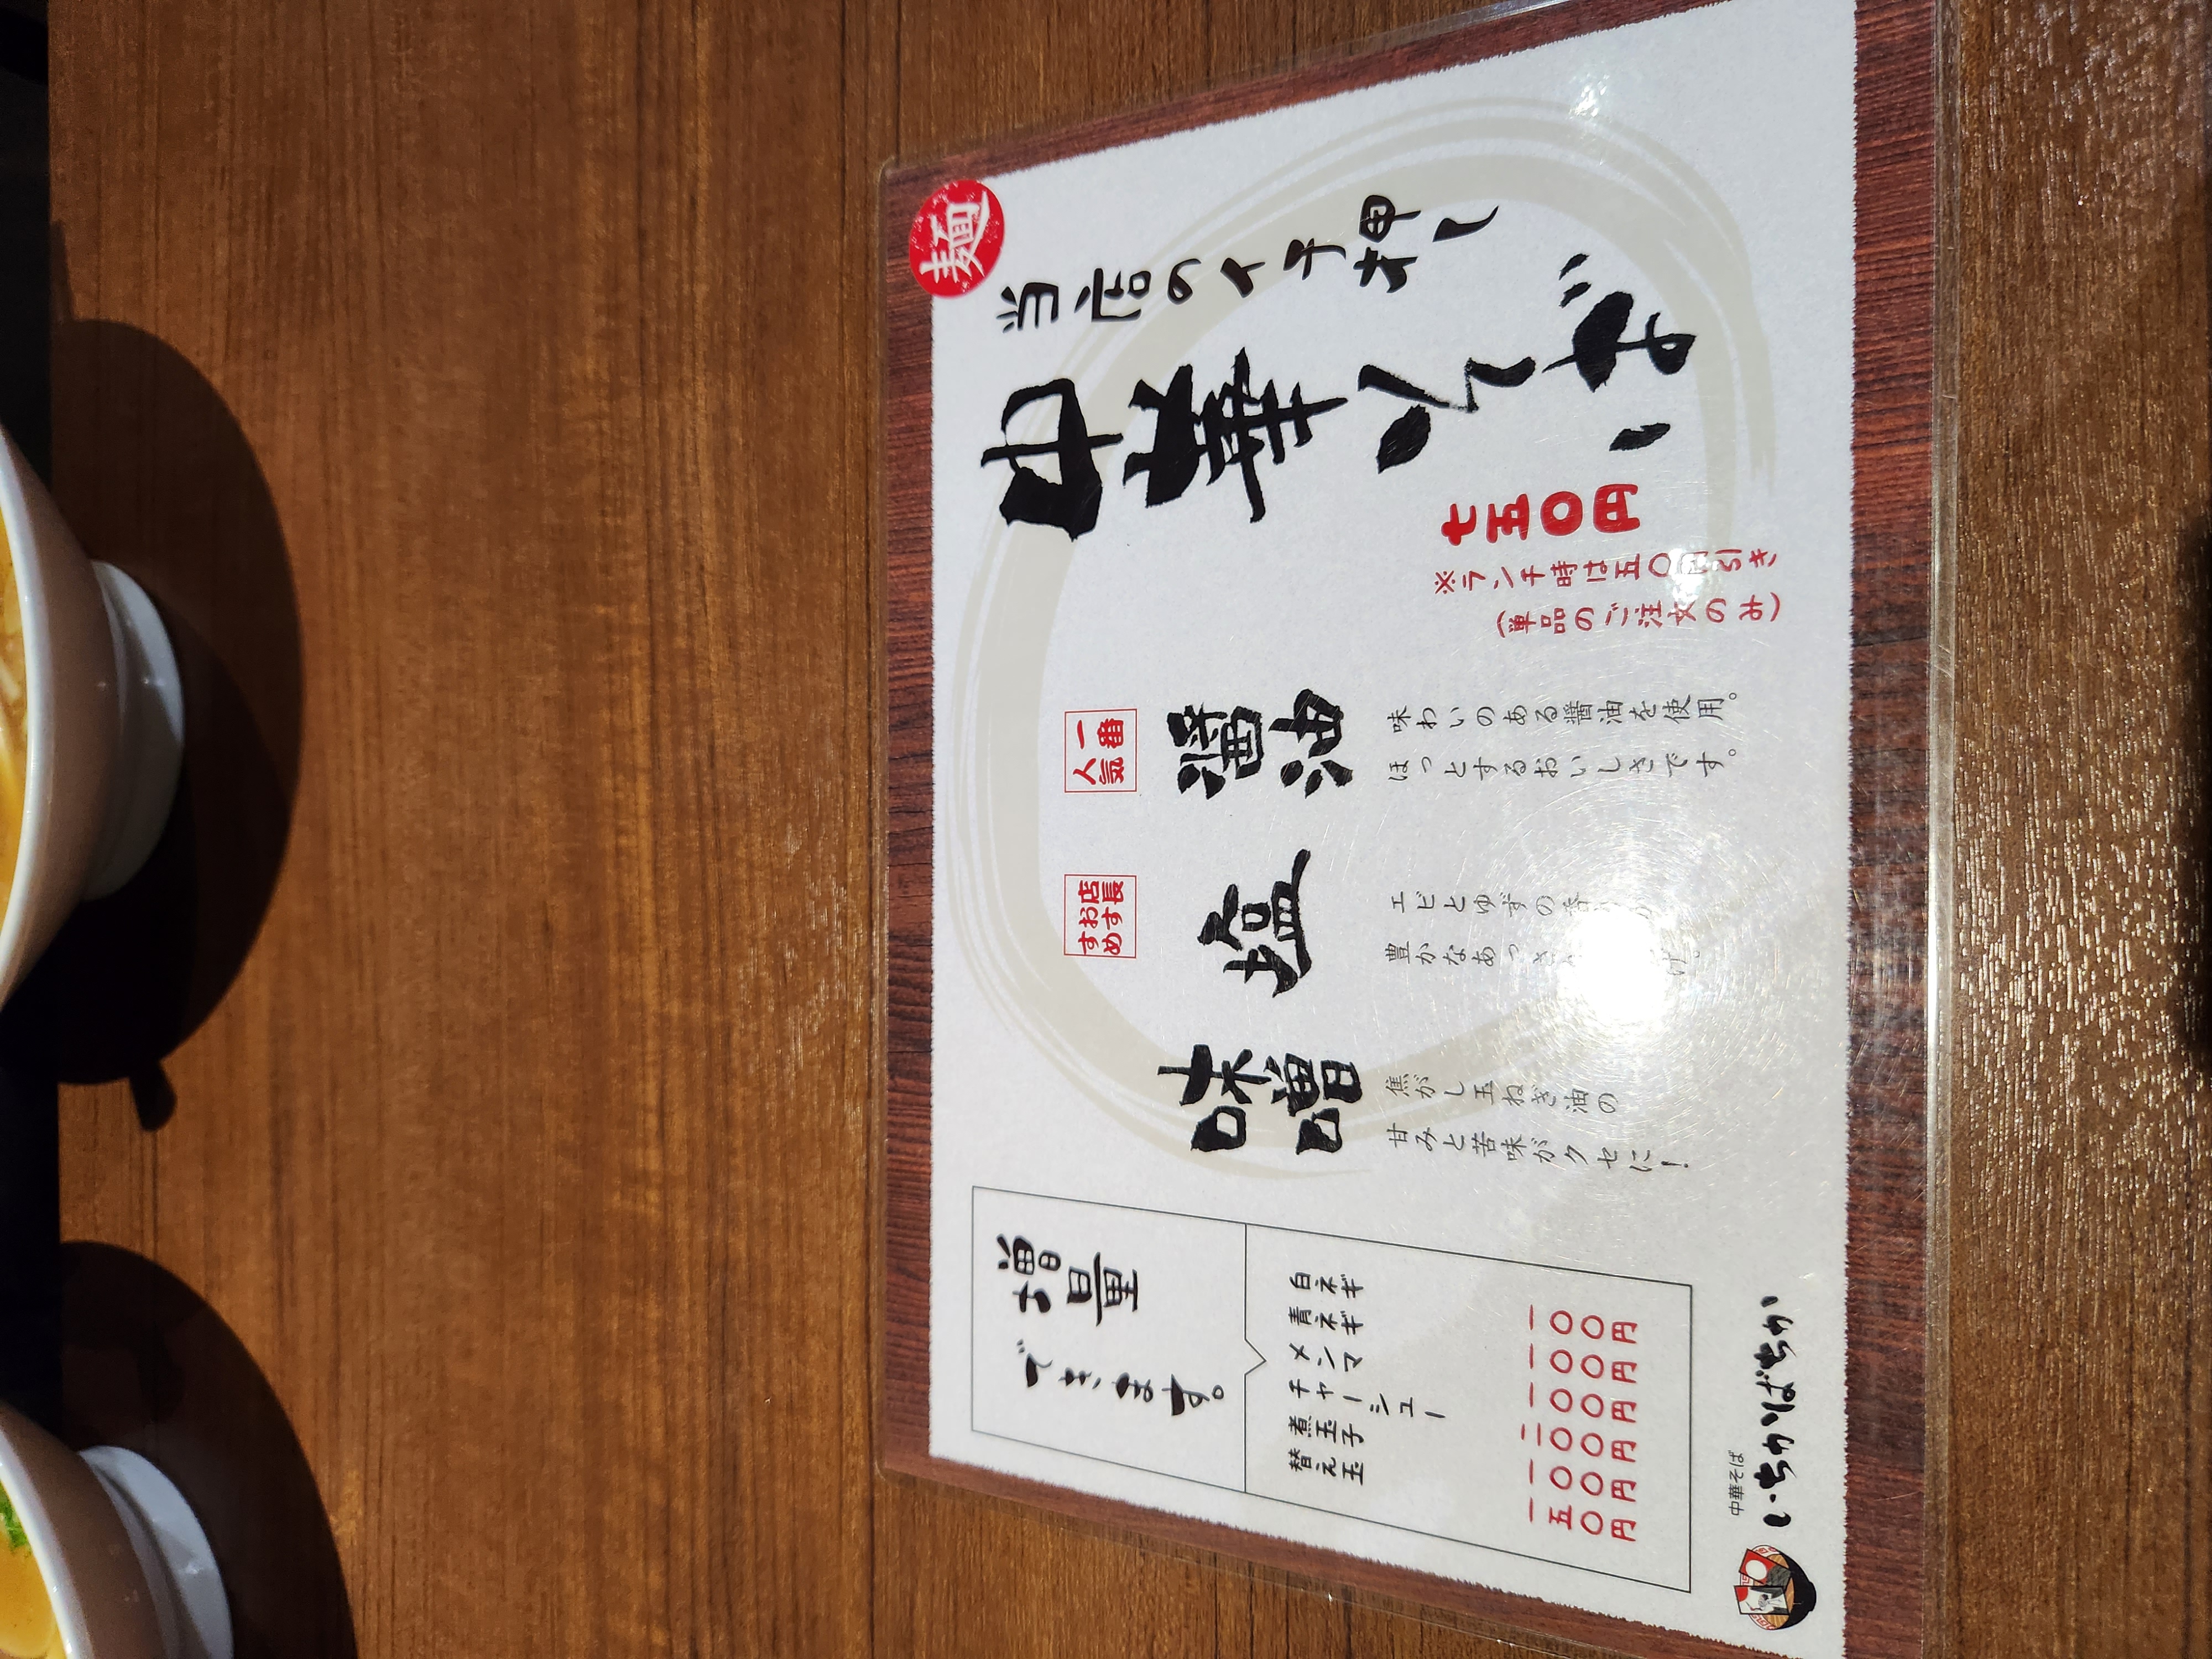 麺
当店のイチ押し
中華そば
七五〇円
※ランチ時は五〇円引き
(単品のご注文のみ)
一番
人気
醤油
味わいのある醤油を使用。
ほっとするおいしさです。
店長
おす
すめ
塩
エビとゆずの香り
豊かなあっさ
味噌
焦がし玉ねぎ油の
甘みと苦味がクセに!
増量
できます。
白ネギ 一〇〇円
青ネギ 一〇〇円
メンマ 一〇〇円
チャーシュー 二〇〇円
煮玉子 一〇〇円
替え玉 一五〇円
中華そば
いちかばちか